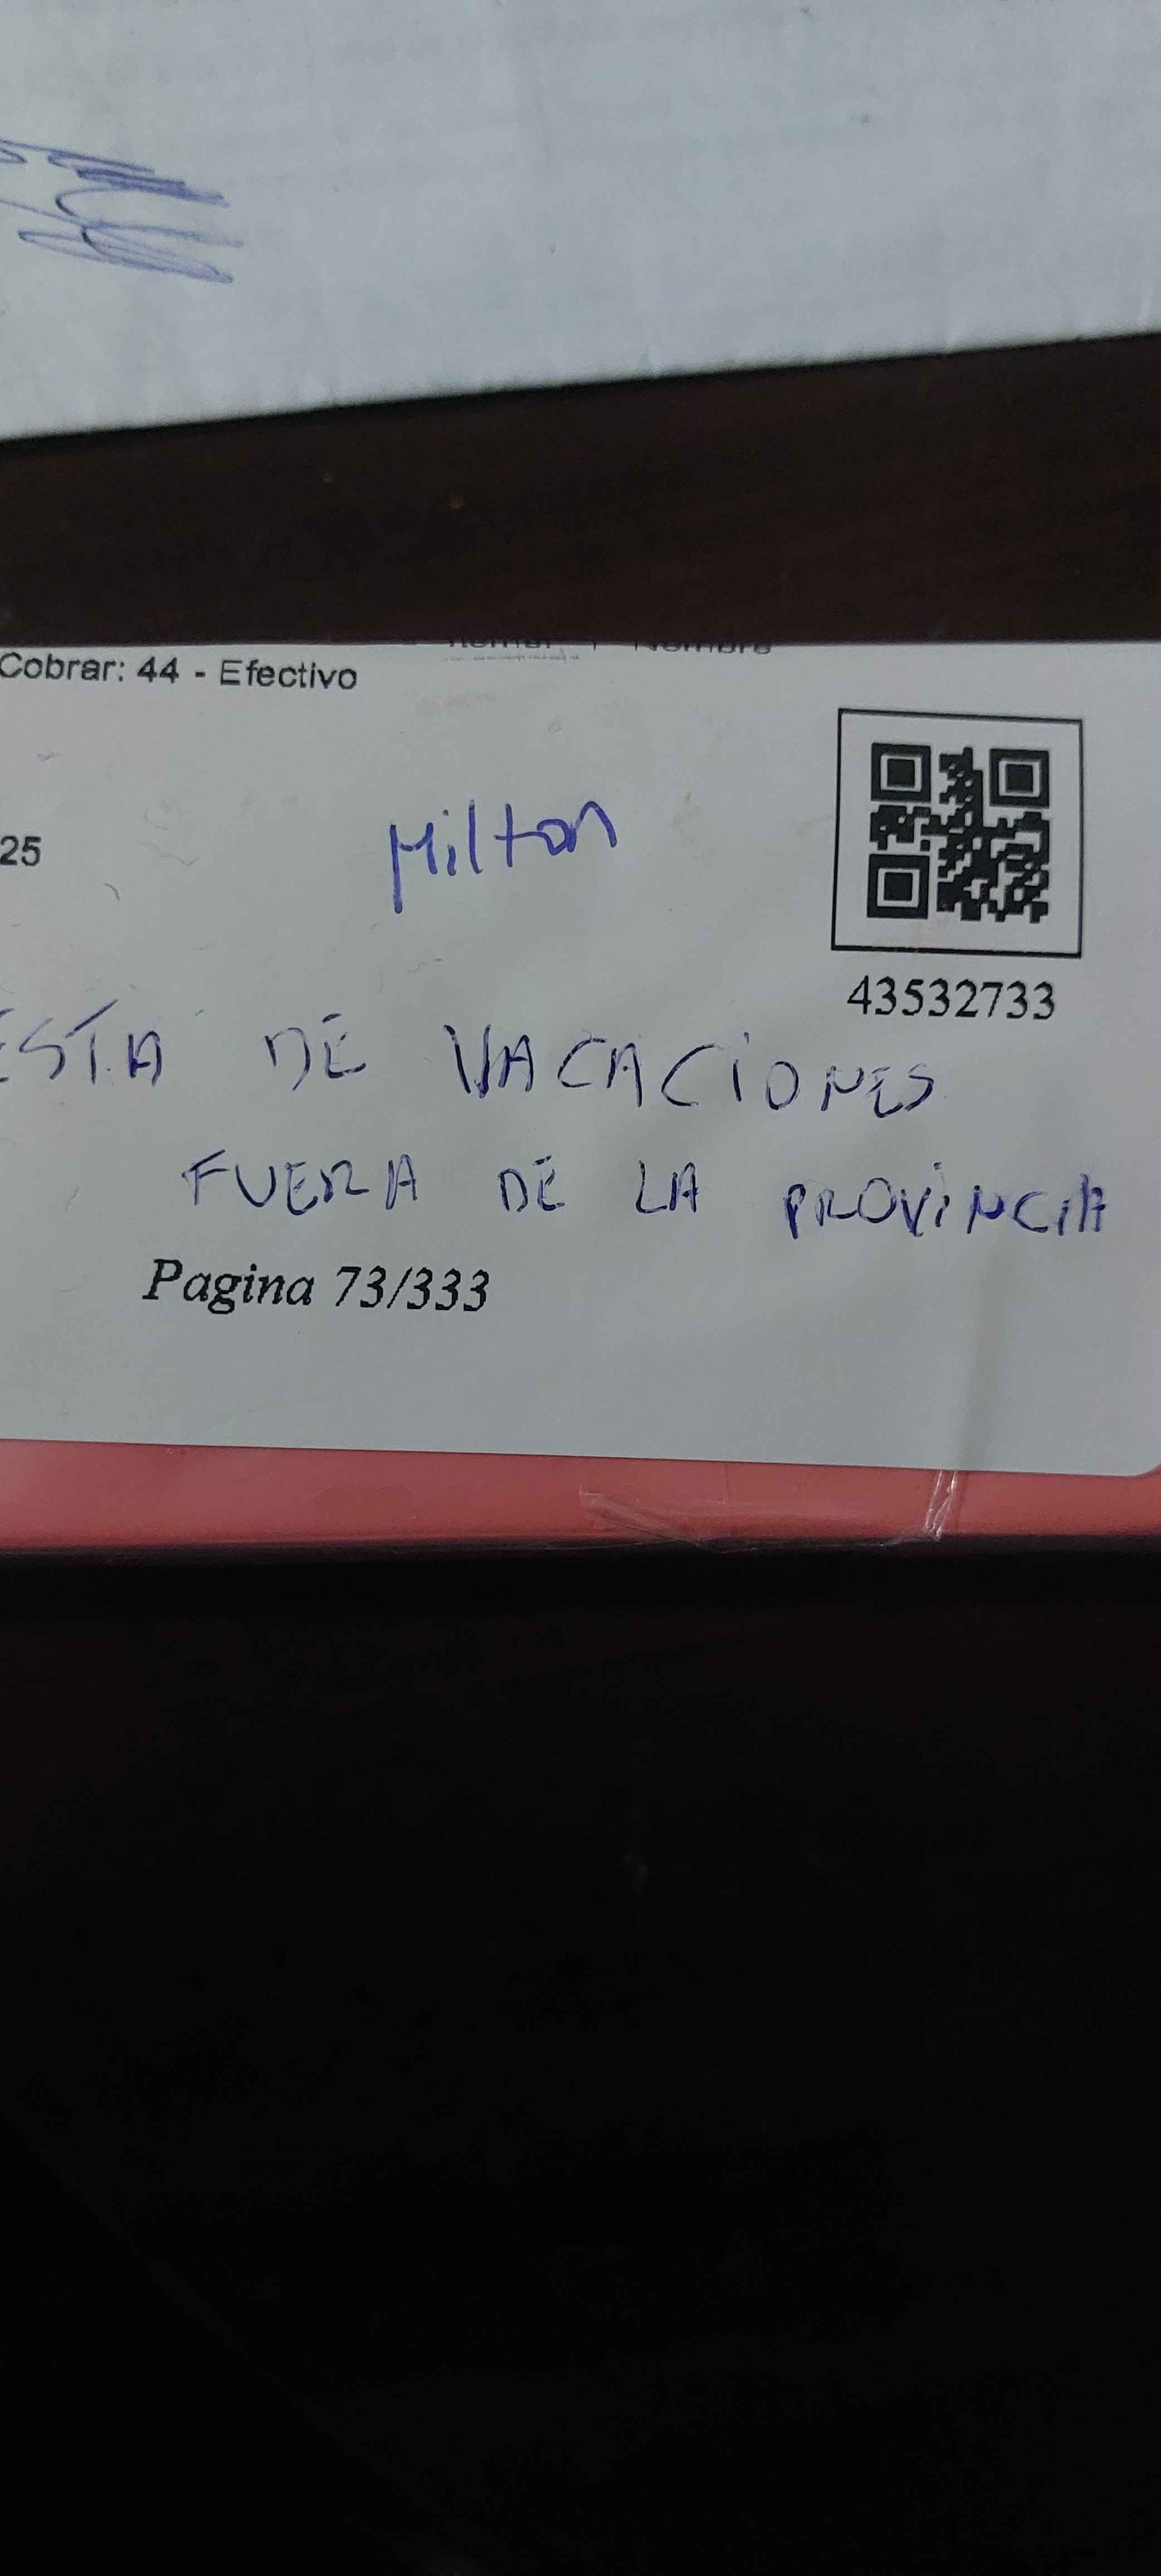 Cobrar: 44 - Efectivo
25
Milton
43532733
ESTA DE VACACIONES
FUERA DE LA PROVINCIA
Pagina 73/333